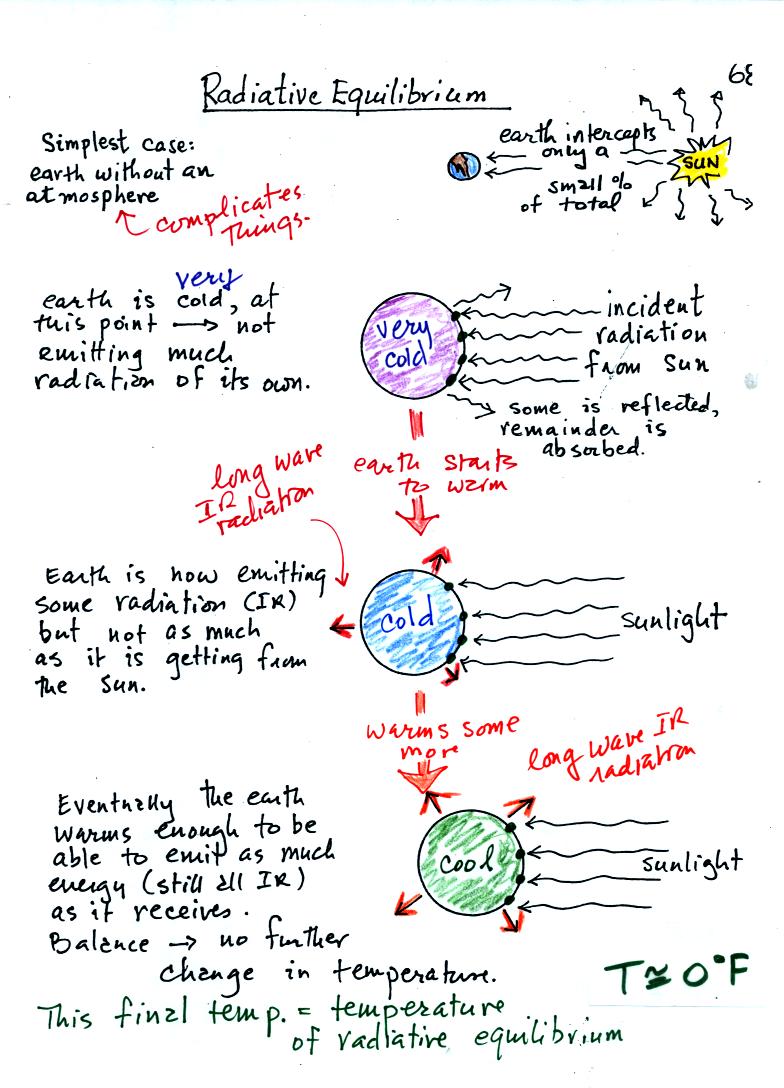 68
Radiative Equilibrium
Simplest case:
earth without an
atmosphere
complicates
things.
earth intercepts
only a
small %
of total
SUN
very
earth is cold, at
this point → not
emitting much
radiation of its own.
very
cold
incident
radiation
from Sun
some is reflected,
remainder is
absorbed.
earth starts
to warm
long wave
IR
radiation
Earth is now emitting
some radiation (IR)
but not as much
as it is getting from
the Sun.
cold
sunlight
warms some
more
long wave IR
radiation
Eventually the earth
warms enough to be
able to emit as much
energy (still all IR)
as it receives.
Balance → no further
change in temperature.
cool
sunlight
T ≅ 0°F
This final temp. = temperature
of radiative equilibrium